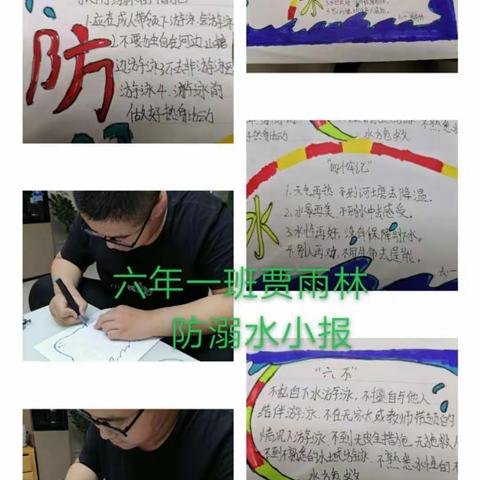 1.应在成人带领下游泳.会游泳
2.不要独自在河边山塘
边游泳3不去非游泳区
游泳4.游泳前
做好热身运动
防
水
"四个牢记"
1.天气再热 不到河塘去降温.
2.水景再美 不到水中去感受.
3.水性再好,没有保障别下水.
4.别人再劝,不用生命去逞能.
六.一
六年一班贾雨林
防溺水小报
"六不"
不私自下水游泳.不擅自与他人
结伴游泳.不在无家长或教师带领的
情况下游泳.不到无安全措施.无施救人
不到不熟悉的水域游泳.不熟悉水性的不
水施救